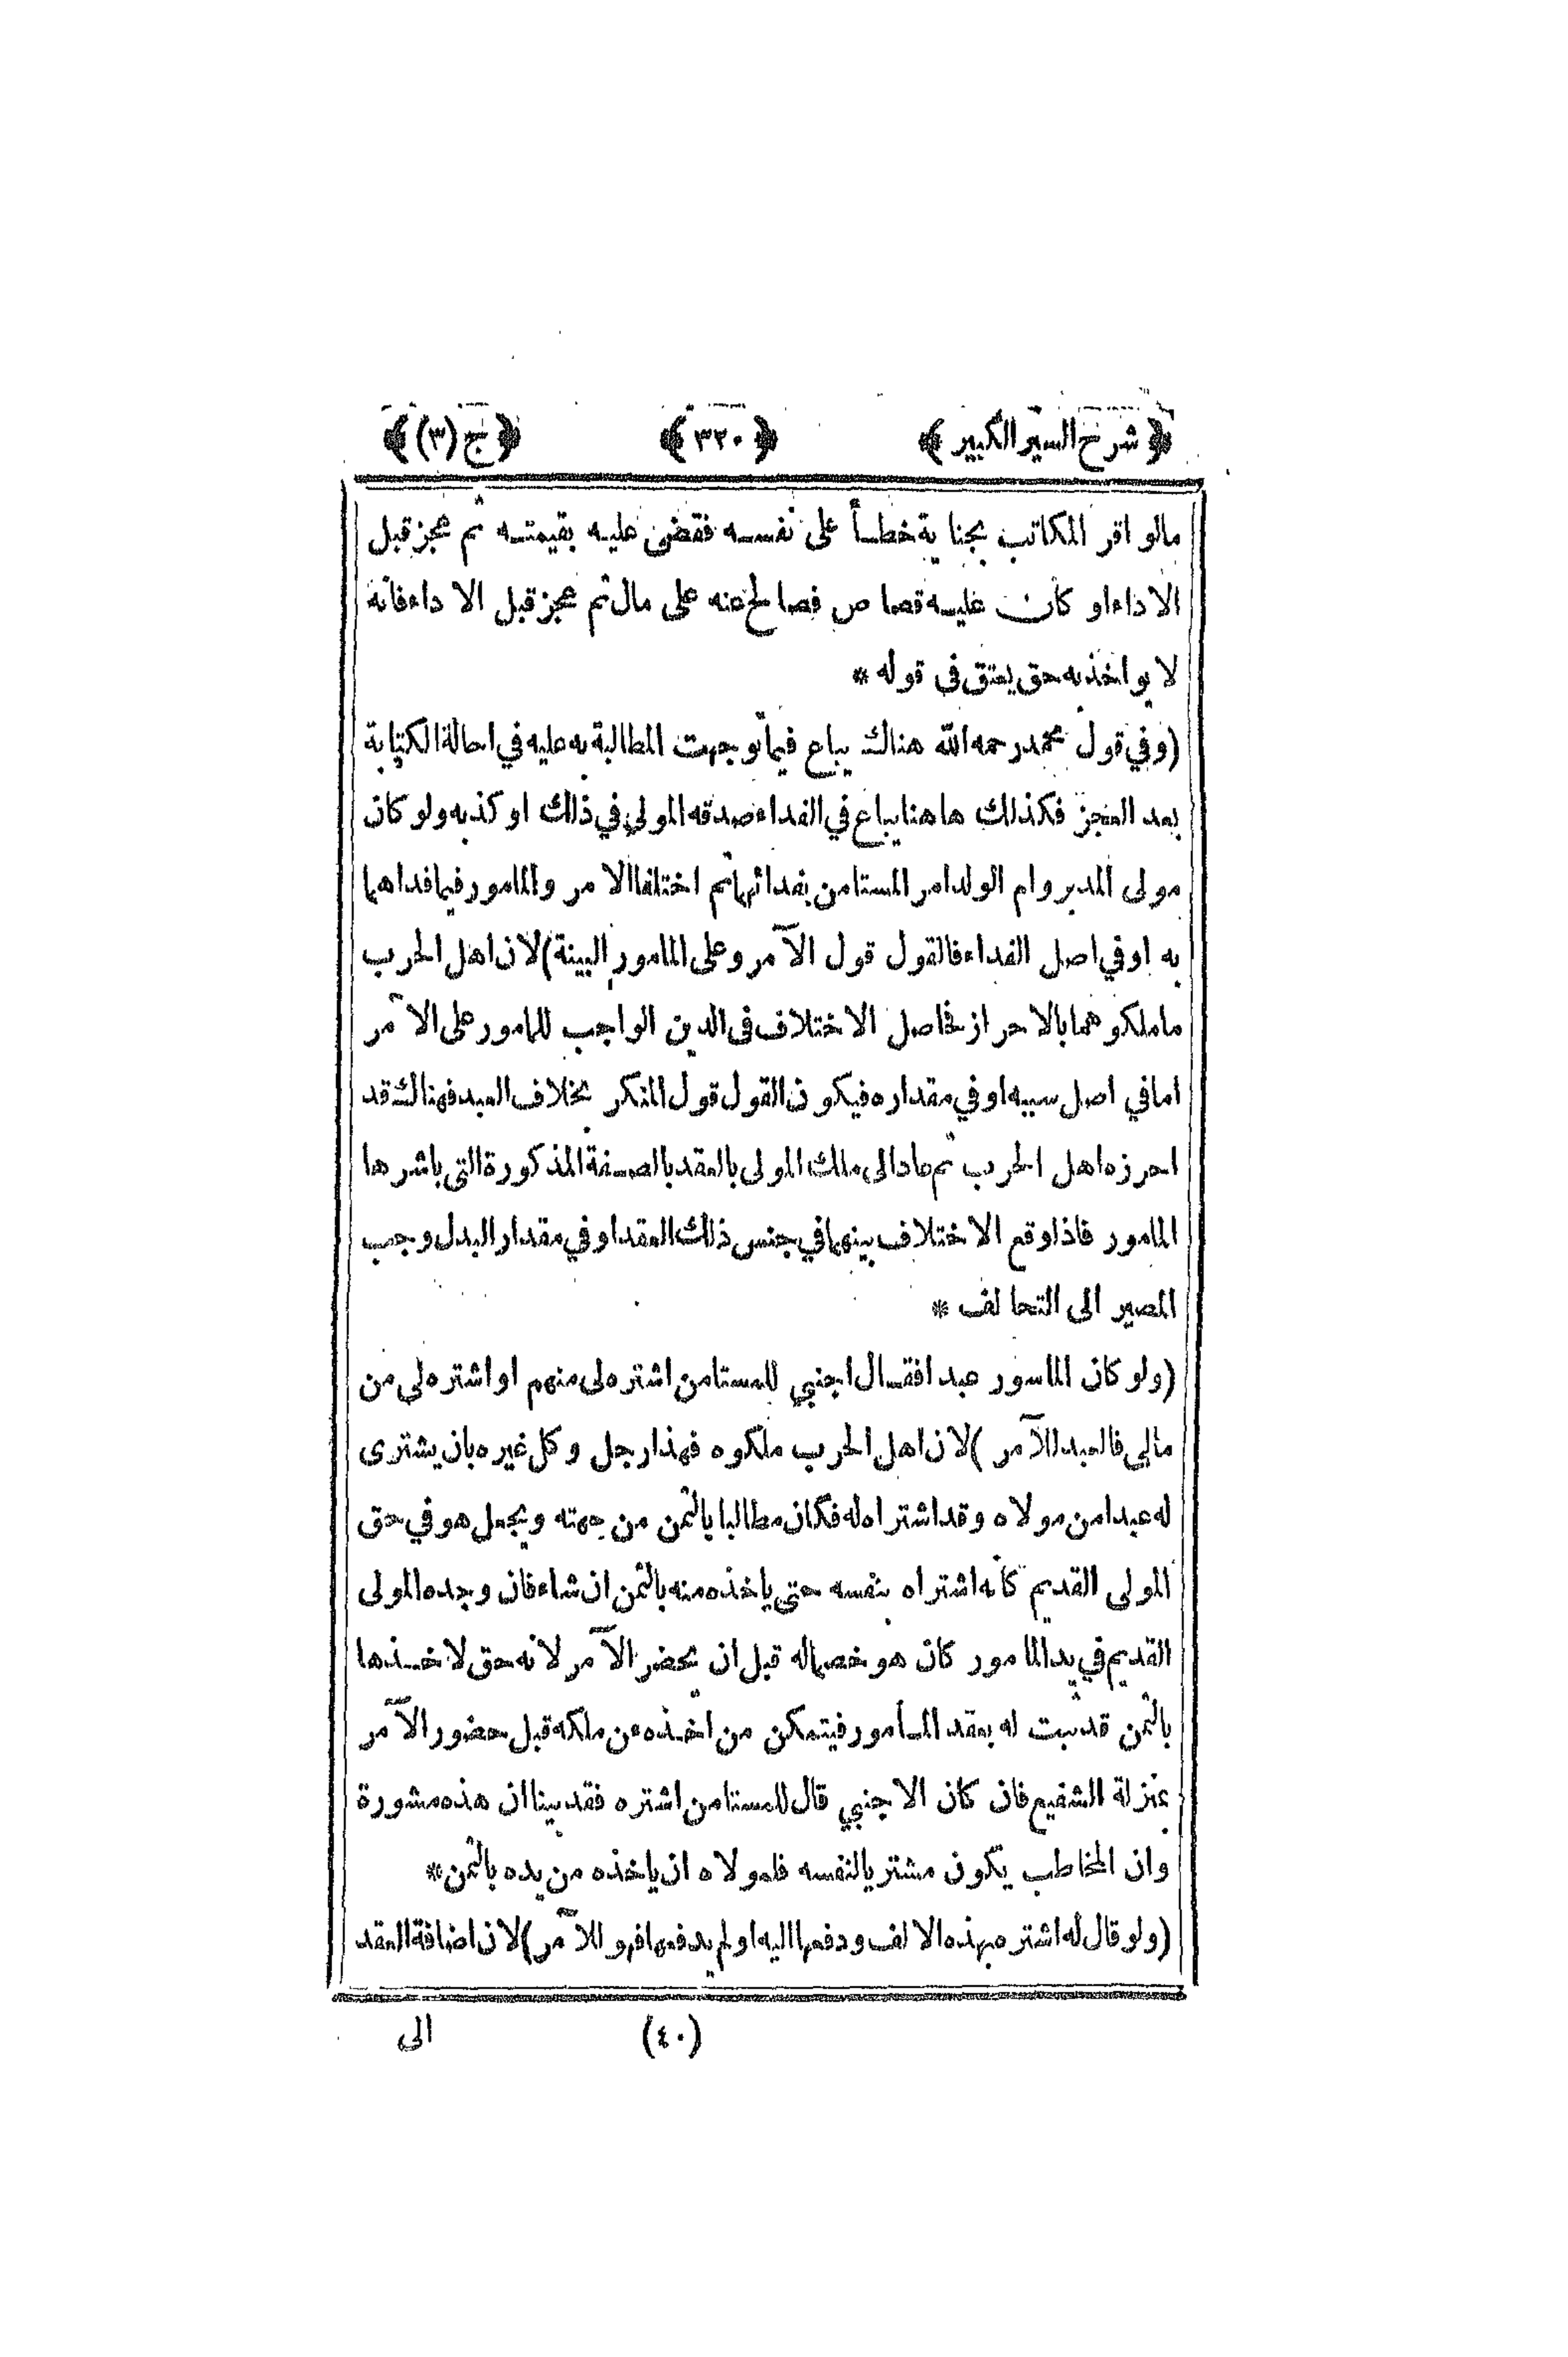 ﴿شرح السير الكبير﴾ ﴿٣٢٠﴾ ﴿ج (٣)﴾
مالو اقر المكاتب بجناية خطأ على نفسه فقضى عليه بقيمته ثم عجز قبل
الاداء او كان عليه قصاص فصالح عنه على مال ثم عجز قبل الاداء فانه
لا يواخذ به حتى يعتق فى قوله *
(وفي قول محمد رحمه الله هناك يباع فيما توجهت المطالبة به عليه في احالة الكتابة
بعد العجز فكذلك هاهنا يباع في الفداء صدقه المولى في ذلك او كذبه ولو كان
مولى المدبر وام الولد امر المستامن بفدائهما ثم اختلفا الآمر والمامور فيما فداهما
به او في اصل الفداء فالقول قول الآمر وعلى المامور البينة) لان اهل الحرب
ما ملكوهما بالاحراز فحاصل الاختلاف فى الدين الواجب للمامور على الآمر
اما في اصل سببه او في مقداره فيكون القول قول المنكر بخلاف العبد فهناك قد
احرزه اهل الحرب ثم عاد الى ملك المولى بالعقد بالصفة المذكورة التى باشرها
المامور فاذا وقع الاختلاف بينهما في جنس ذلك العقد او في مقدار البدل وجب
المصير الى التحالف *
(ولو كان الماسور عبدا فقال اجنبي للمستامن اشتره لى منهم او اشتره لى من
مالى فالعبد للآمر) لان اهل الحرب ملكوه فهذا رجل وكل غيره بان يشترى
له عبدا من مولاه وقد اشتراه له فكان مطالبا بالثمن من جهته ويجعل هو في حق
المولى القديم كأنه اشتراه بنفسه حتى ياخذه منه بالثمن ان شاء فان وجده المولى
القديم في يد المامور كان هو خصما له قبل ان يحضر الآمر لانه حق لاخذها
بالثمن قد ثبت له بعقد المأمور فيتمكن من اخذه عن ملكه قبل حضور الآمر
بمنزلة الشفيع فان كان الاجنبي قال للمستامن اشتره فقد بينا ان هذه مشورة
وان المخاطب يكون مشتريا لنفسه فلمولاه ان ياخذه من يده بالثمن *
(ولو قال له اشتره بهذه الالف ودفعها اليه او لم يدفعها فهو للآمر) لان اضافة العقد
(٤٠) الى